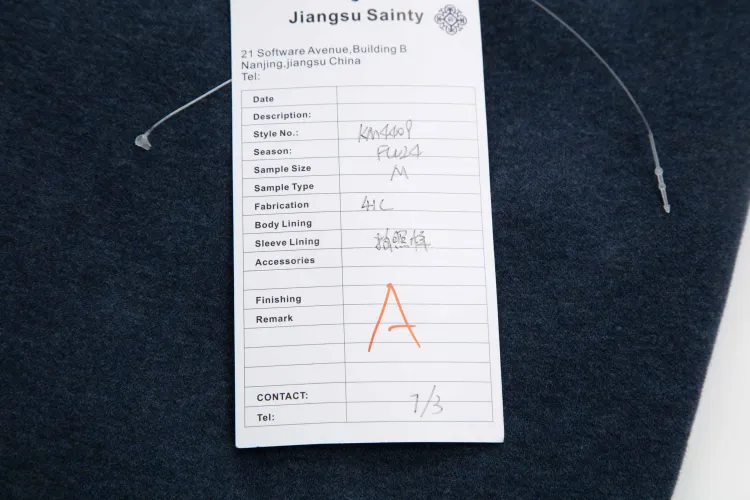 Jiangsu Sainty
21 Software Avenue,Building B
Nanjing,jiangsu China
Tel:
Date
Description:
Style No.: KM4409
Season: FW24
Sample Size M
Sample Type
Fabrication 41C
Body Lining
Sleeve Lining 拍照样
Accessories
Finishing
Remark A
CONTACT: 7/3
Tel: